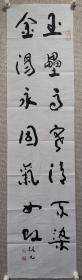 玉壘高寒清不染
金湯永固氣如虹